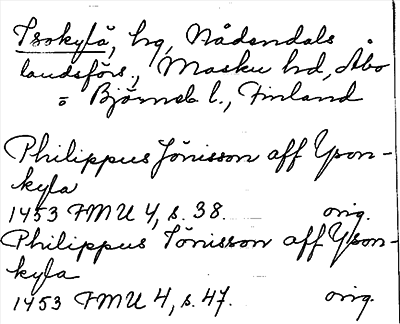 Isokylä, hg, Nådendals
landsförs., Masku hd, Åbo
o Björneb l., Finland
Philippus Jönisson aff Yson-
kyla
1453 FMU 4, s. 38. orig.
Philippus Jönisson aff Yson-
kyla
1453 FMU 4, s. 47. orig.